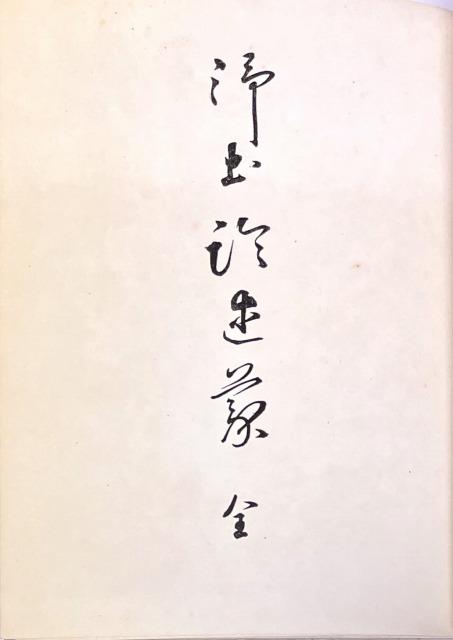 浄土論述義 全